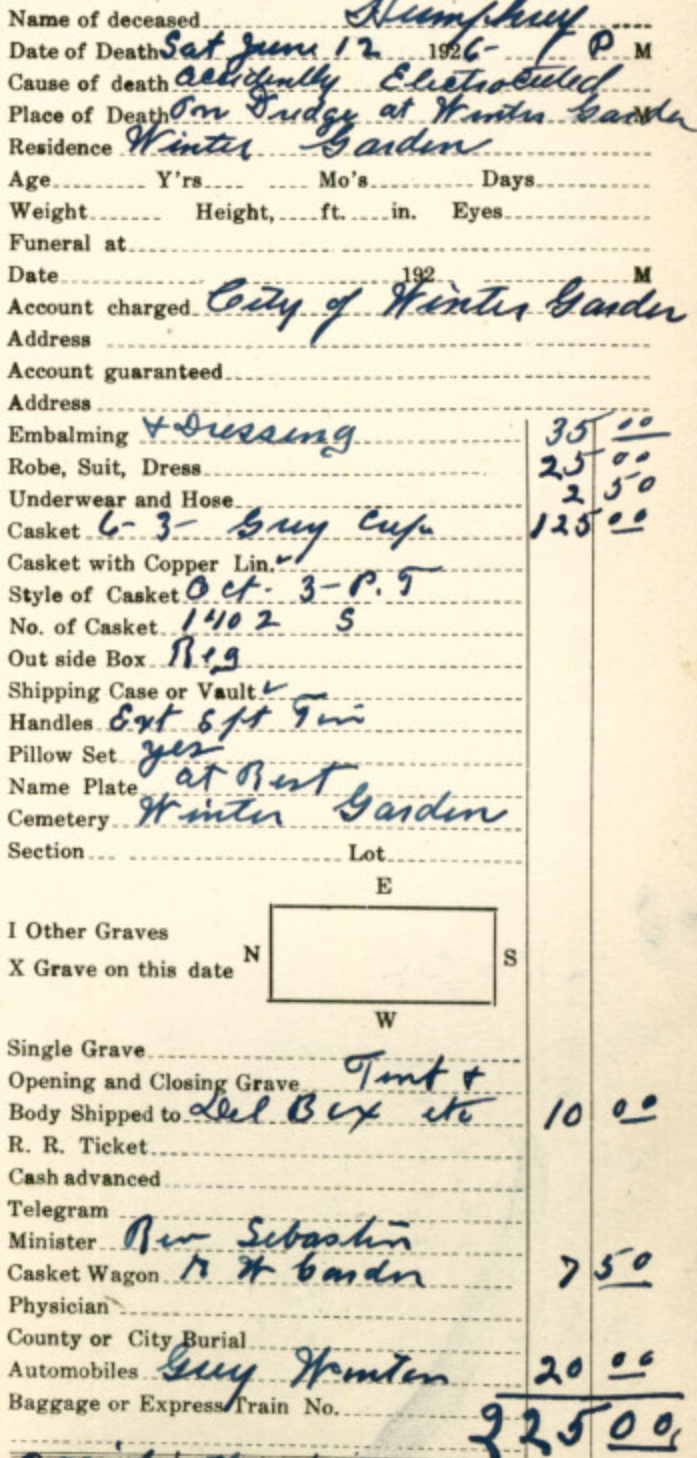 Name of deceased Humphrey
Date of Death Sat June 12 1926 - 9 P M
Cause of death accidently Electrocuted
Place of Death On Dredge at Winter Garden M
Residence Winter Garden
Age Y'rs Mo's Days
Weight Height, ft. in. Eyes
Funeral at
Date 192 M
Account charged City of Winter Garden
Address
Account guaranteed
Address
Embalming + Dressing 35 00
Robe, Suit, Dress 25 00
Underwear and Hose 2 50
Casket 6-3- Grey 125 00
Casket with Copper Lin.
Style of Casket Oct. 3-P.T
No. of Casket 1402 S
Out side Box Reg
Shipping Case or Vault
Handles Ext 6ft
Pillow Set yes
Name Plate at Rest
Cemetery Winter Garden
Section Lot
E
I Other Graves
N S
X Grave on this date
W
Single Grave
Opening and Closing Grave Tent +
Body Shipped to Del Box etc 10 00
R. R. Ticket
Cash advanced
Telegram
Minister Rev Sebastin
Casket Wagon W Garden 7 50
Physician
County or City Burial
Automobiles Guy Winton 20 00
Baggage or Express Train No. 225 00